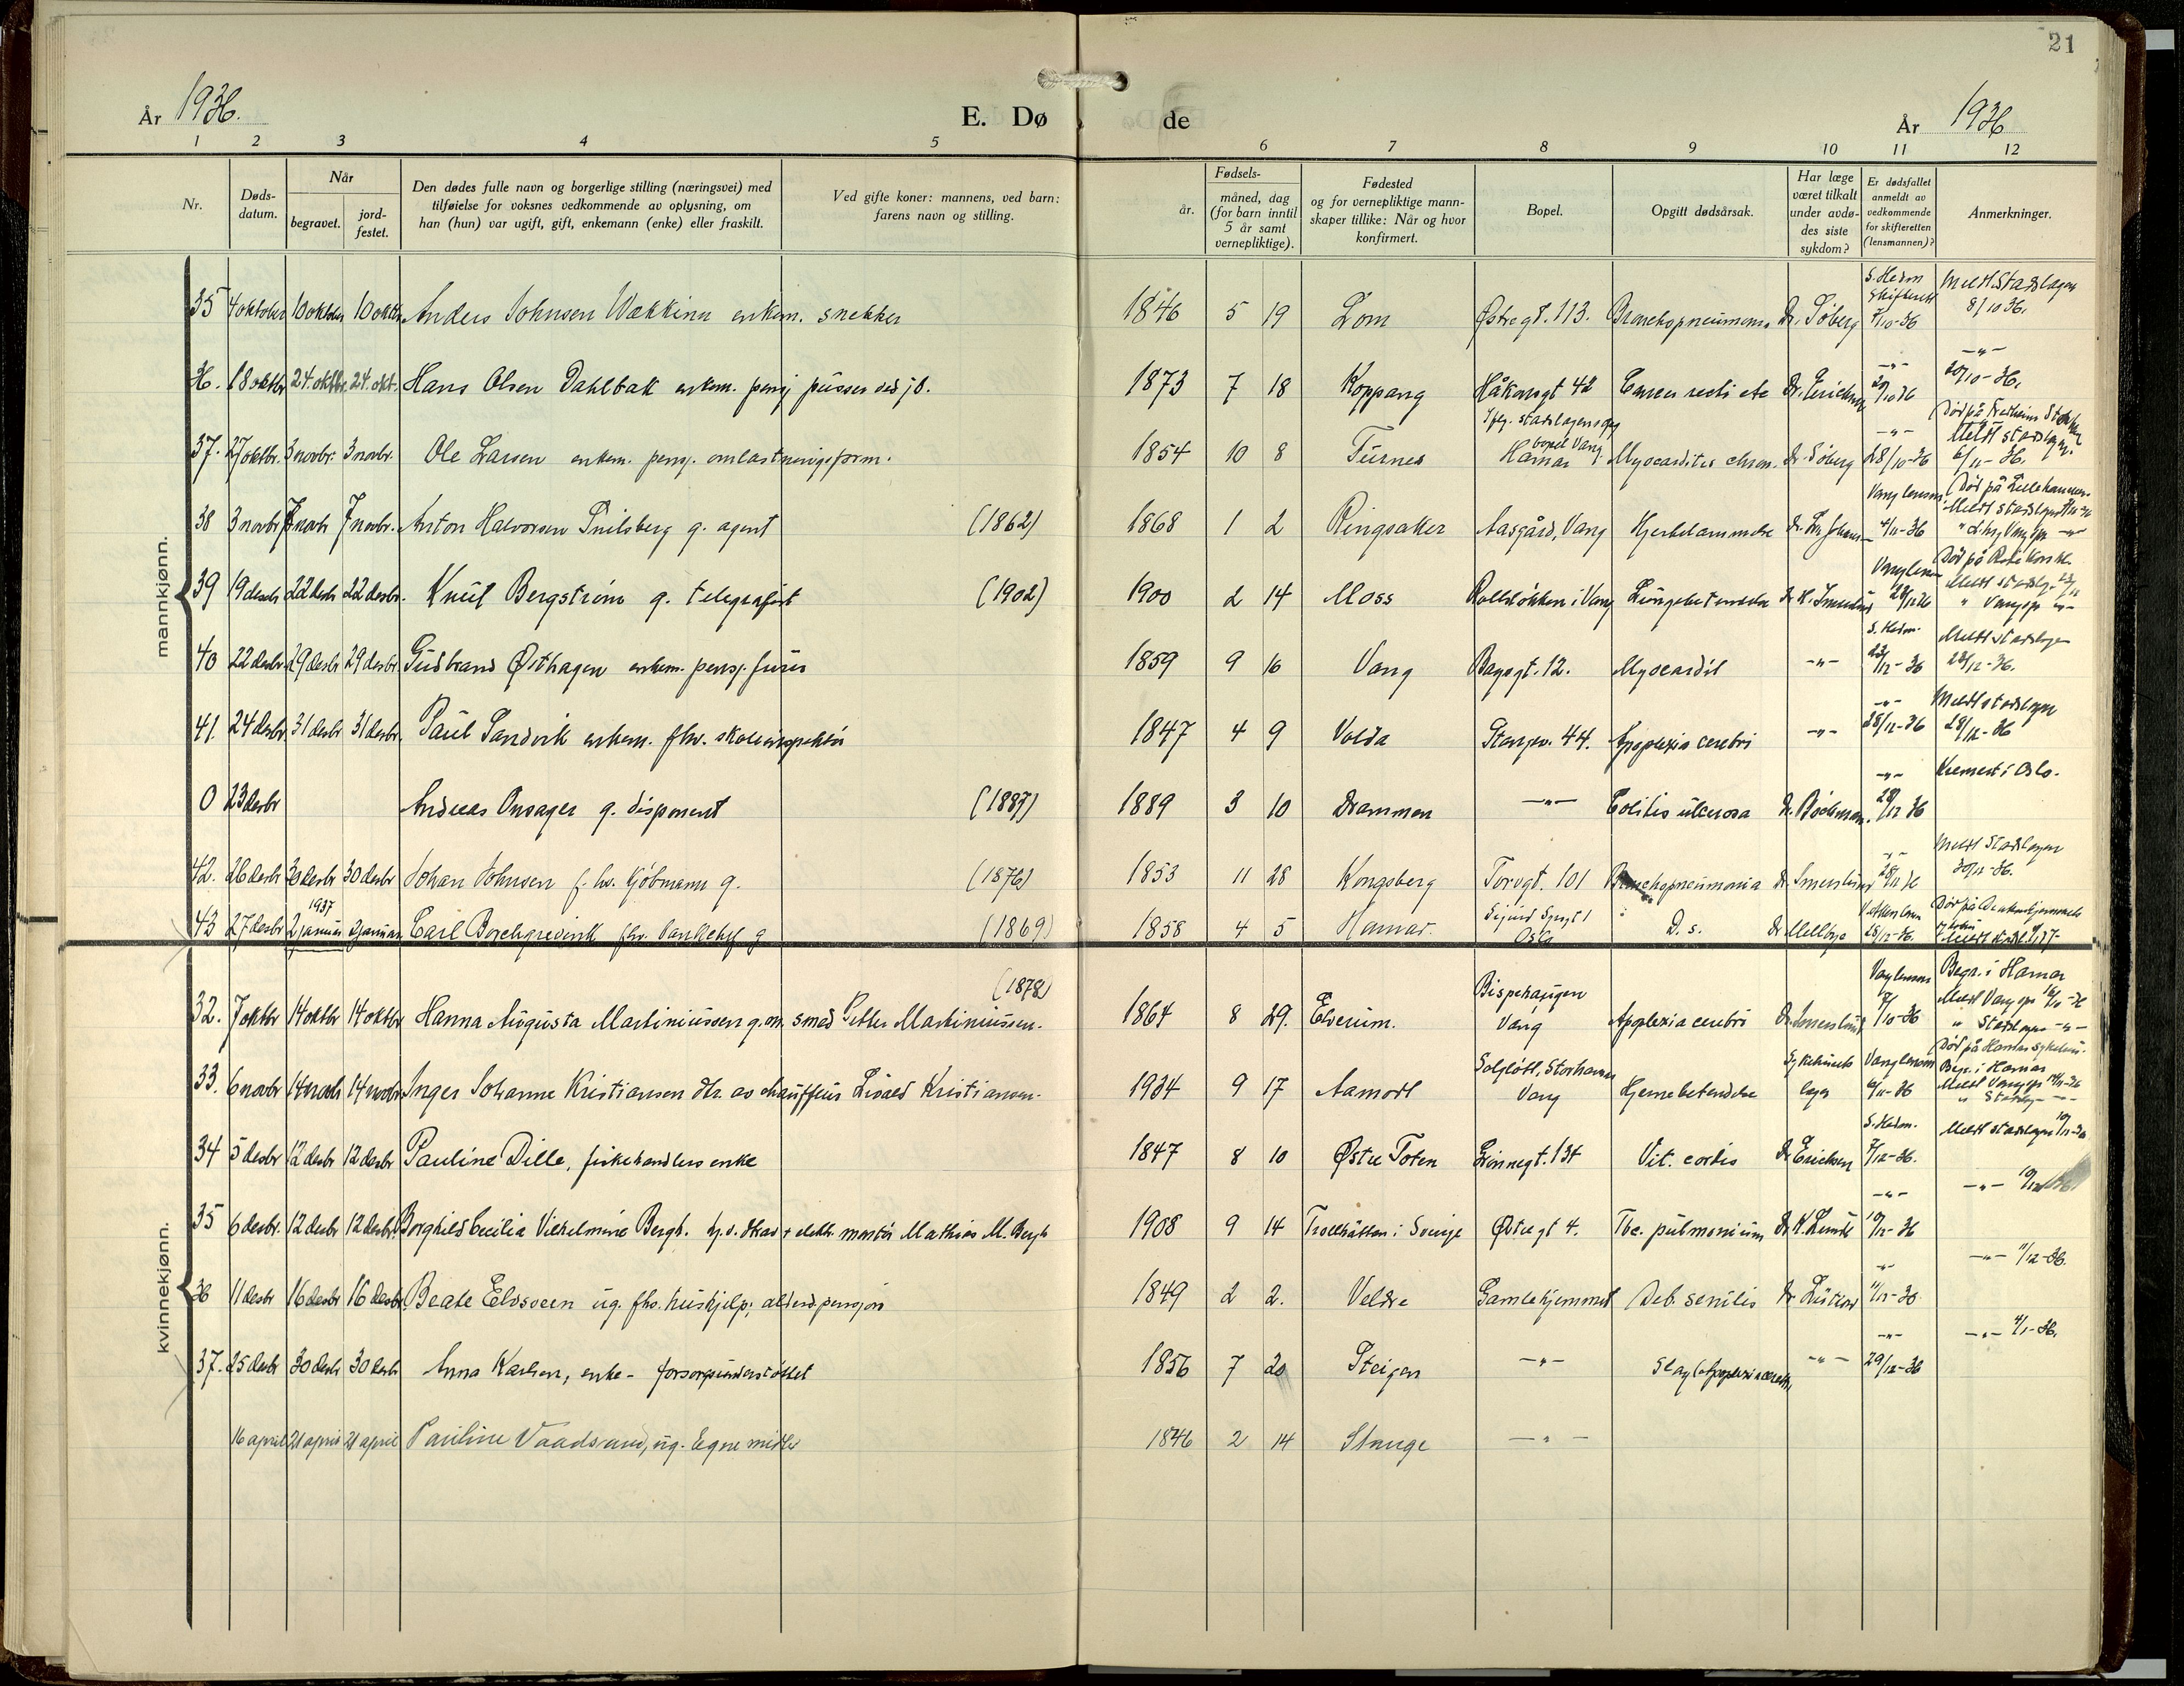 21
År 1936.
E. Dø de
År 1936
1 2 3 4 5 6 7 8 9 10 11 12
Nr.
Døds-
datum.
Når
begravet.
jord-
festet.
Den dødes fulle navn og borgerlige stilling (næringsvei) med
tilføielse for voksnes vedkommende av oplysning, om
han (hun) var ugift, gift, enkemann (enke) eller fraskilt.
Ved gifte koner: mannens, ved barn:
farens navn og stilling.
Fødsels-
år.
måned, dag
(for barn inntil
5 år samt
vernepliktige).
Fødested
og for vernepliktige mann-
skaper tillike: Når og hvor
konfirmert.
Bopel.
Opgitt dødsårsak.
Har læge
været tilkalt
under avdø-
des siste
sykdom?
Er dødsfallet
anmeldt av
vedkommende
for skifteretten
(lensmannen)?
Anmerkninger.
mannkjønn.
35 4 oktober 10 oktober 10 oktbr Anders Johnsen Wækkinn enkem. snekker 1846 5 19 Lom Østregt. 113. Bronchopneumoni Dr. Søberg S. Hedm Skifterett 7/10-36 Meldt Stadslagen 8/10 36.
36. 18 oktbr 24. oktbr. 24. okt. Hans Olsen Dahlbak enkem. pensj pusser ved jb. 1873 7 18 Koppang Håkonsgt 42 Cancer recti etc Dr. Erichsen -"- 20/10 36 -"- 20/10-36.
37. 27 oktbr. 3 novbr. 3 novbr. Ole Larsen enkem. pensj. omlastningsform. 1854 10 8 Furnes bopel Vang Hamar Myocarditis chron. Dr. Søberg -"- 28/10-36 Meldt stadslagen 6/11-36.
38 3 novbr 7 novbr 7 novbr. Anton Halvorsen Snilsberg g. agent (1862) 1868 1 2 Ringsaker Aasgård, Vang Hjertelammelse Vang lensm. 4/11-36 Død på Lillehammer.
39 19 desbr 22 desbr 22 desbr. Knut Bergstrøm g. telegrafist (1902) 1900 2 14 Moss Rolløkken i Vang Lungebetendelse Vang lensm
40 22 desbr. 29 desbr 29 desbr Gudbrand Østhagen enkem. pensj. furer 1859 9 16 Vang Bagogt. 12. Myocardit -"- S. Hedm. 23/12-36 Meldt stadslagen 23/12-36.
41. 24 desbr. 31 desbr 31 desbr. Paul Sandvik enkem. fhv. skoleinspektør 1847 4 9 Volda Stangev. 44. Apoplexia cerebri -"- -"- 28/12-36 Meldt stadslagen 28/12-36
0 23 desbr Andreas Onsager g. disponent (1887) 1889 3 10 Drammen -"- Colitis ulcerosa Dr. Bockman. -"- 28/12 36 Kremert i Oslo.
42. 26 desbr 30 desbr 30 desbr Johan Johnsen f. hv. kjøbmann g. (1876) 1853 11 28 Kongsberg Torvgt. 101 Bronchopneumonia Dr Smeslund -"- 28/12 36 Meldt Stadslagen 30/12-36.
1937
43 27 desbr 2 januar 2 januar Carl Borchgrevink fhv. bankchef g (1869) 1858 4 5 Hamar. Oslo D. s. Dr Mellbye V. Aker lensm 28/12-36.
kvinnekjønn.
32. 7 oktbr 14 oktbr 14 oktbr Hanna Augusta Martiniussen g. m. smed Petter Martiniussen. (1878) 1864 8 29. Elverum. Bispehaugen Vang Apoplexia cerebri Dr. Smeslund Vang lensm 8/10-36 Begr. i Hamar
33. 6 novbr 14 novbr 14 novbr Inger Johanne Kristiansen dtr. av chauffeur Edvard Kristiansen. 1934 9 17 Aamodt Solgløtt, Storhamar Vang Hjernebetendelse Sykehusets læge Vang lensm 6/11-36 Død på Hamar sykehus. Begr. i Hamar
34 5 desbr 12 desbr 12 desbr Pauline Dille, fiskehandlers enke 1847 8 10 Østre Toten Grønnegt. 134 Vit. cordis Dr Erichsen S. Hedm. 7/12-36. Meldt stadslagen 10/12-36
35 6 desbr. 12 desbr 12 desbr. Borghild Cecilia Vilhelmine Bergh. elektr. montør Mathias M. Bergh 1908 9 14 Trollhättan i Sverige Østregt 4. Tbc. pulmonium Dr K. Lunde -"- 10/12-36 -"- 10/12 1936
36 11 desbr 16 desbr 16 desbr Beate Elvsveen ug. fhv. hushjelp; alderspensjon 1849 2 2. Veldre Gamlehjemmet Deb. senilis -"- 11/12-36 -"- 11/12-36.
37. 25 desbr 30 desbr 30 desbr Anna Karlsen, enke - forsorgsunderstøttet 1856 7 20 Steigen -"- Slag (Apoplexia cerebri) -"- -"- 29/12-36 -"- 4/1-36.
16 april 21 april 21 april Pauline Vaadsrand, ug. Egne midler 1846 2 14 Stange -"-